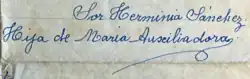 Sor Herminia Sánchez
Hija de Maria Auxiliadora